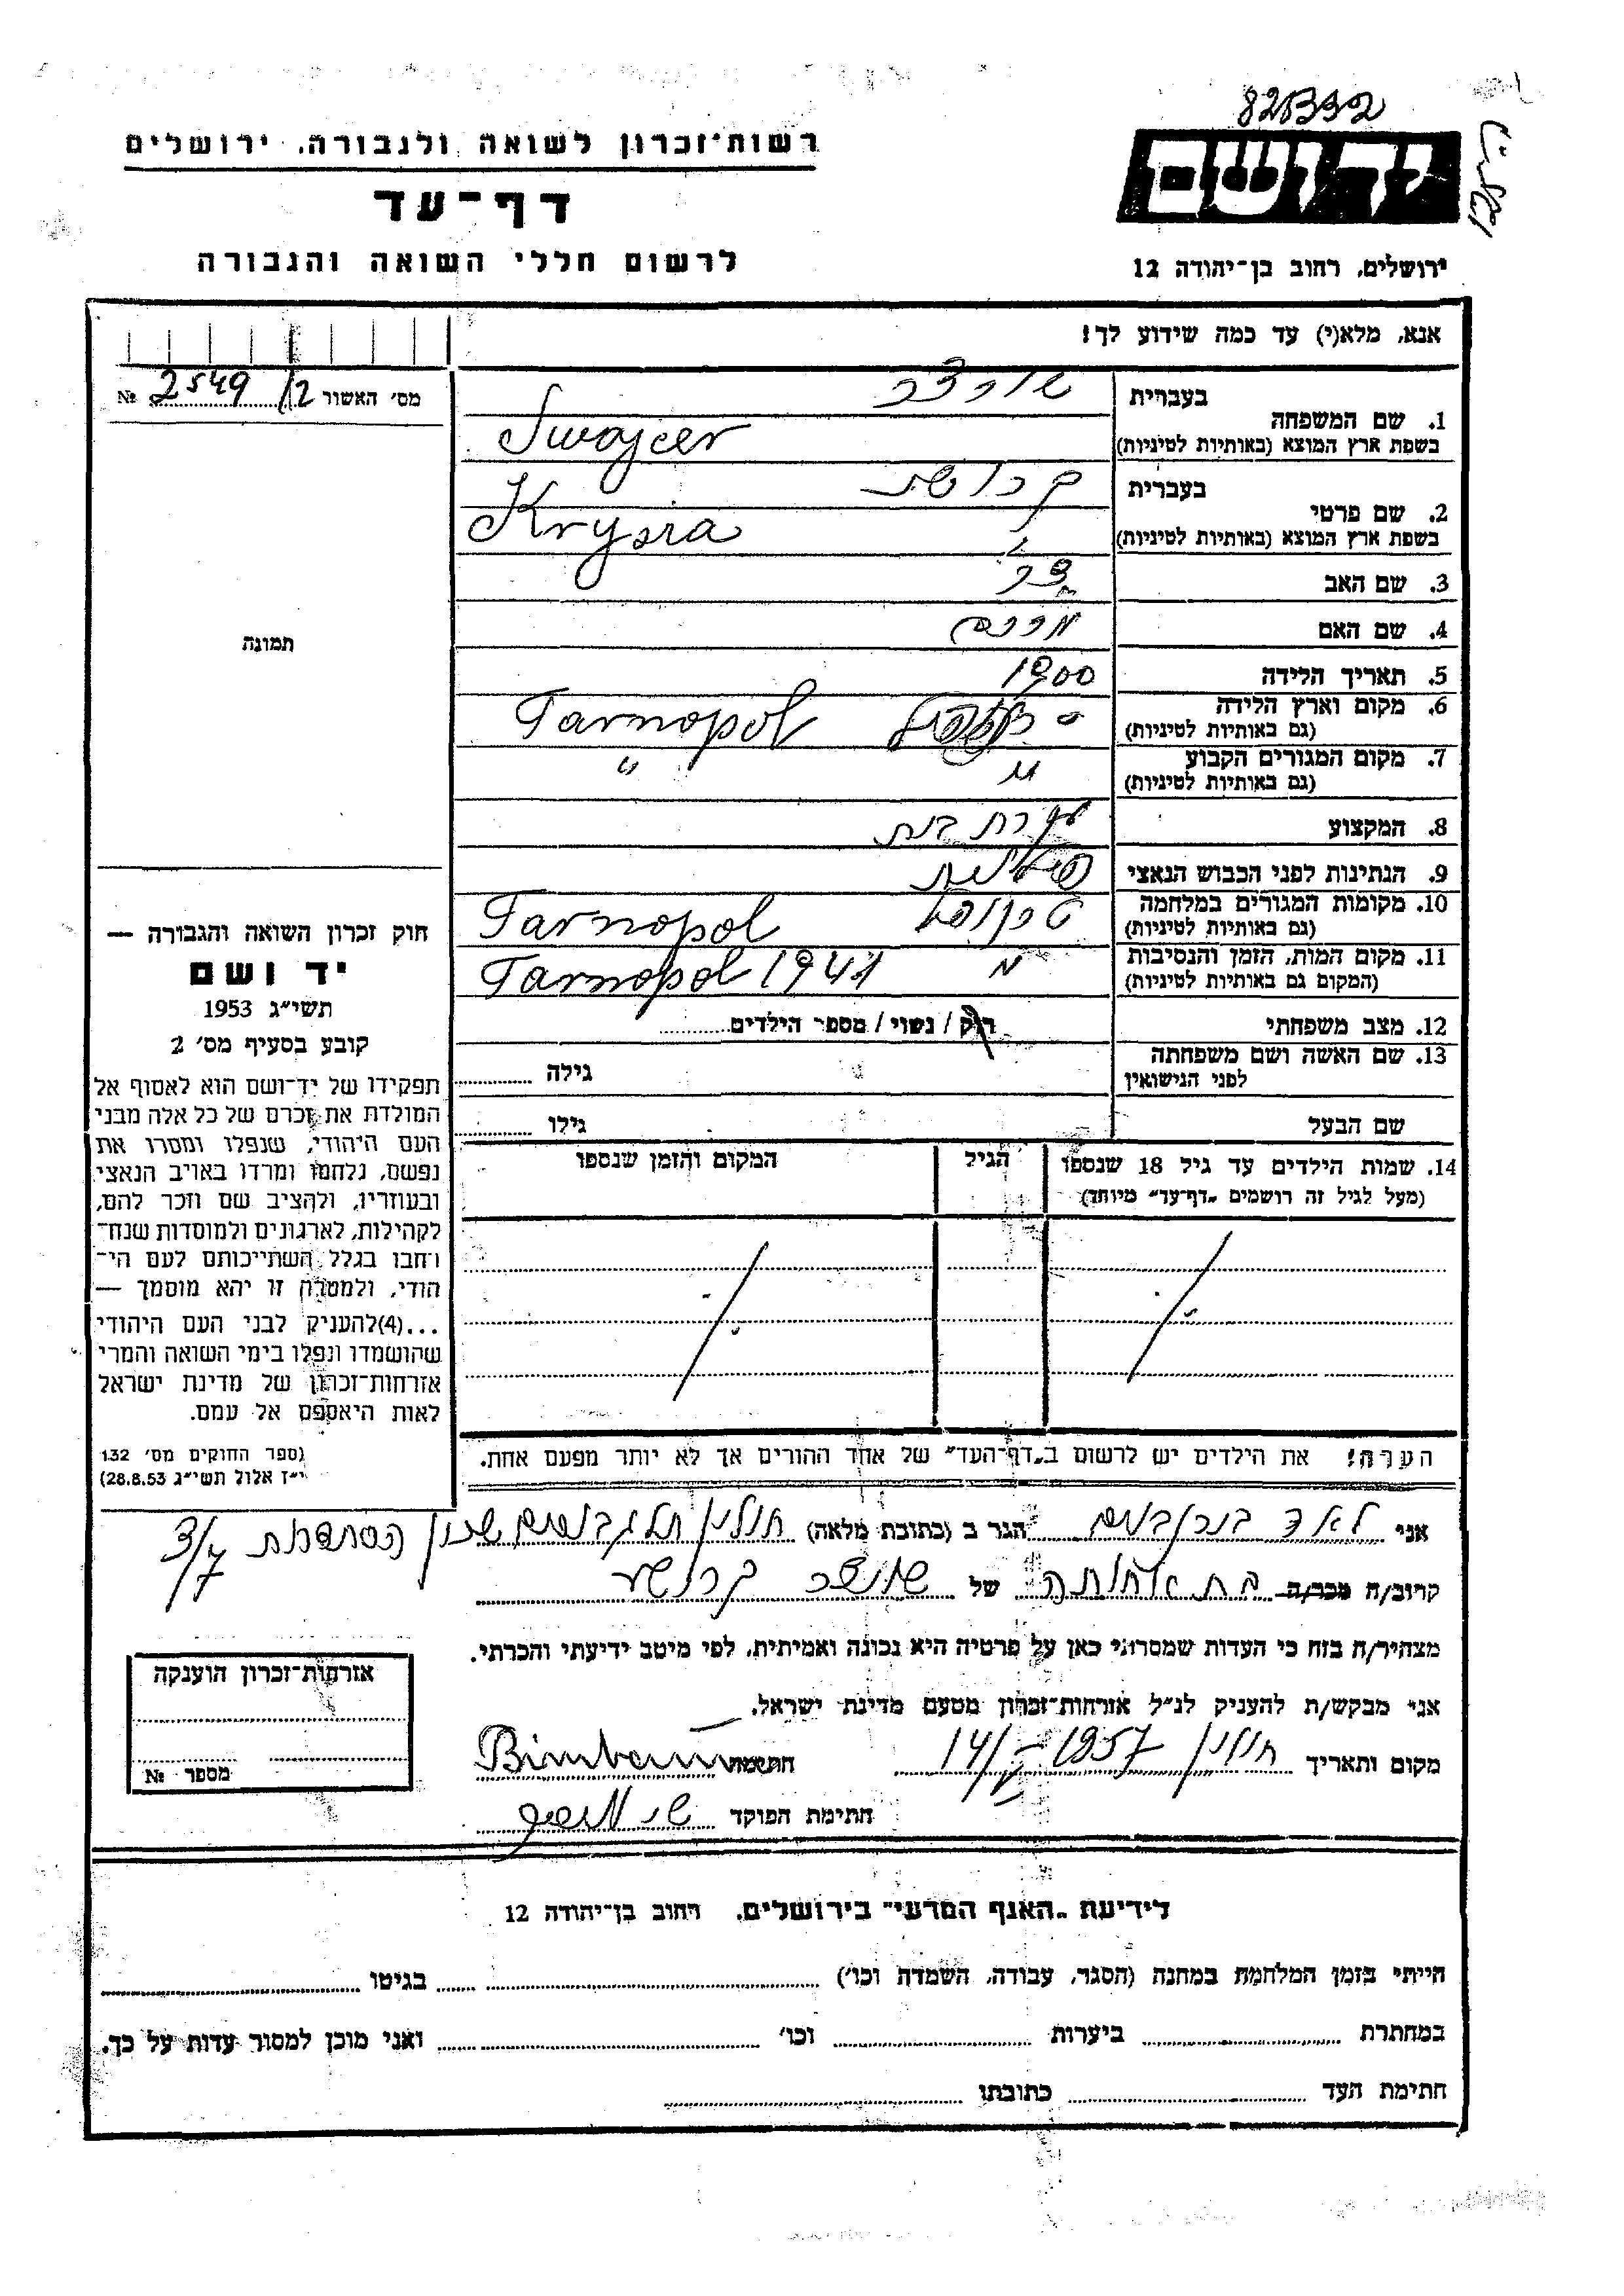 82בככפ
רשות־זכרון לשואה ולגבורה, ירושלים
דף־עד
לרשום חללי השואה והגבורה
יד ושם
ירושלים, רחוב בן־יהודה 12
אנא, מלא(י) עד כמה שידוע לך!
מס׳ האשור 12/ 2549 №
תמונה
1. שם המשפחה
בעברית
בשפת ארץ המוצא (באותיות לטיניות) Swojcer
2. שם פרטי
בעברית
בשפת ארץ המוצא (באותיות לטיניות) Krysia
3. שם האב
4. שם האם מרים
5. תאריך הלידה 1900
6. מקום וארץ הלידה Tarnopol
(גם באותיות לטיניות)
7. מקום המגורים הקבוע " "
(גם באותיות לטיניות)
8. המקצוע עקרת בית
9. הנתינות לפני הכבוש הנאצי פולנית
10. מקומות המגורים במלחמה טרנופול Tarnopol
(גם באותיות לטיניות)
11. מקום המות, הזמן והנסיבות " Tarnopol 1941
(המקום גם באותיות לטיניות)
12. מצב משפחתי רוק / נשוי / מספר הילדים
13. שם האשה ושם משפחתה גילה
לפני הנישואין
שם הבעל גילו
14. שמות הילדים עד גיל 18 שנספו הגיל המקום והזמן שנספו
(מעל לגיל זה רושמים „דף־עד” מיוחד)
הערה! את הילדים יש לרשום ב„דף־העד” של אחד ההורים אך לא יותר מפעם אחת.
חוק זכרון השואה והגבורה —
יד ושם
תשי״ג 1953
קובע בסעיף מס׳ 2
תפקידו של יד־ושם הוא לאסוף אל
המולדת את זכרם של כל אלה מבני
העם היהודי, שנפלו ומסרו את
נפשם, נלחמו ומרדו באויב הנאצי
ובעוזריו, ולהציב שם וזכר להם,
לקהילות, לארגונים ולמוסדות שנח־
רחבו בגלל השתייכותם לעם הי־
הודי, ולמטרה זו יהא מוסמך —
...(4)להעניק לבני העם היהודי
שהושמדו ונפלו בימי השואה והמרי
אזרחות־זכרון של מדינת ישראל
לאות היאספם אל עמם.
(ספר החוקים מס׳ 132
י״ז אלול תשי״ג 28.8.53)
אני לאה בירנבוים הגר ב (כתובת מלאה) חולון תל גבורים שכון הסתדרות 3/7
קרוב/ה מכר/ה בת אחותה של שויצר קרושע
מצהיר/ה בזה כי העדות שמסרתי כאן על פרטיה היא נכונה ואמיתית, לפי מיטב ידיעתי והכרתי.
אני מבקש/ת להעניק לנ״ל אזרחות־זכרון מטעם מדינת ישראל.
מקום ותאריך חולון 14/V-1957 חתימה Birnbaum
חתימת הפוקד
אזרחות־זכרון הוענקה
מספר №
לידיעת „האגף המדעי” בירושלים, רחוב בן־יהודה 12
הייתי בזמן המלחמה במחנה (הסגר, עבודה, השמדה וכו׳) בגיטו
במחתרת ביערות וכו׳ ואני מוכן למסור עדות על כך.
חתימת העד כתובתו